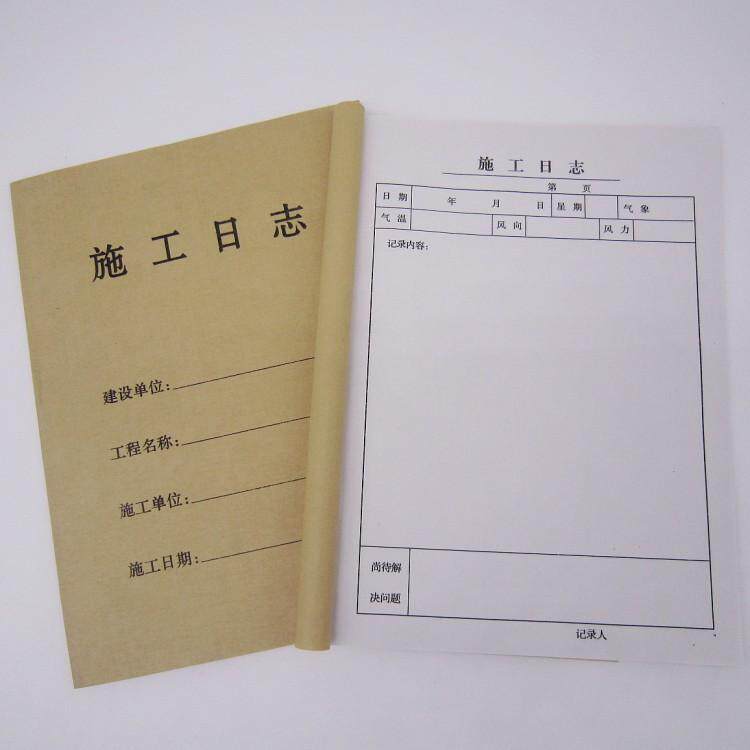 施工日志
建设单位:
工程名称:
施工单位:
施工日期:
施工日志
第 页
日期 年 月 日 星期 气象
气温 风向 风力
记录内容:
尚待解
决问题
记录人